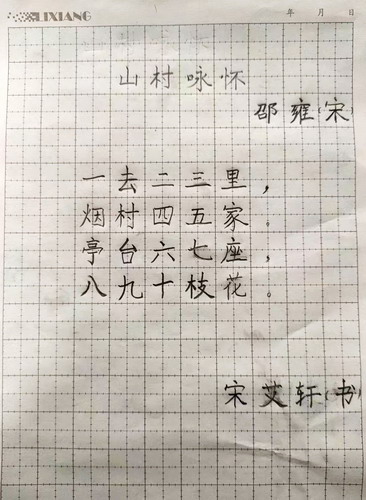 LIXIANG 年 月 日
山村咏怀
邵雍(宋)
一去二三里，
烟村四五家。
亭台六七座，
八九十枝花。
宋艾轩(书)